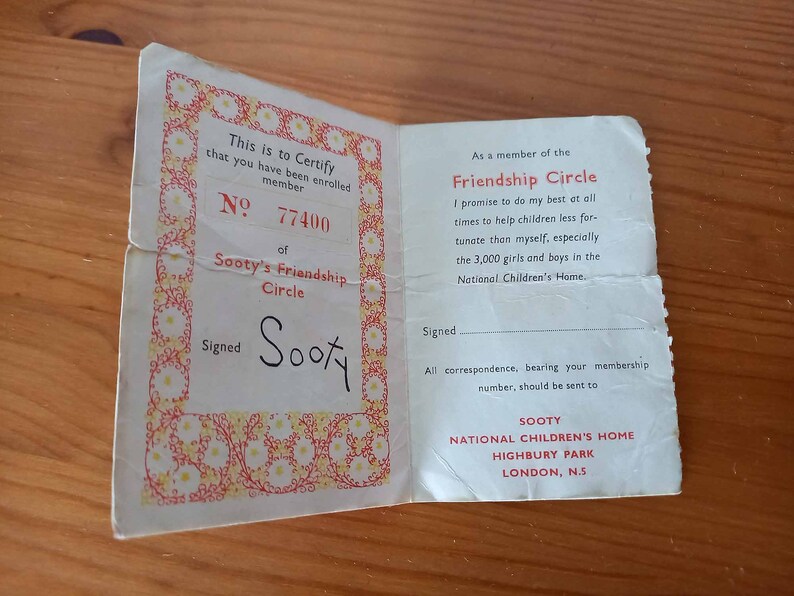 This is to Certify
that you have been enrolled
member
No. 77400
of
Sooty's Friendship
Circle
Signed Sooty
As a member of the
Friendship Circle
I promise to do my best at all
times to help children less for-
tunate than myself, especially
the 3,000 girls and boys in the
National Children's Home.
Signed
All correspondence, bearing your membership
number, should be sent to
SOOTY
NATIONAL CHILDREN'S HOME
HIGHBURY PARK
LONDON, N.5